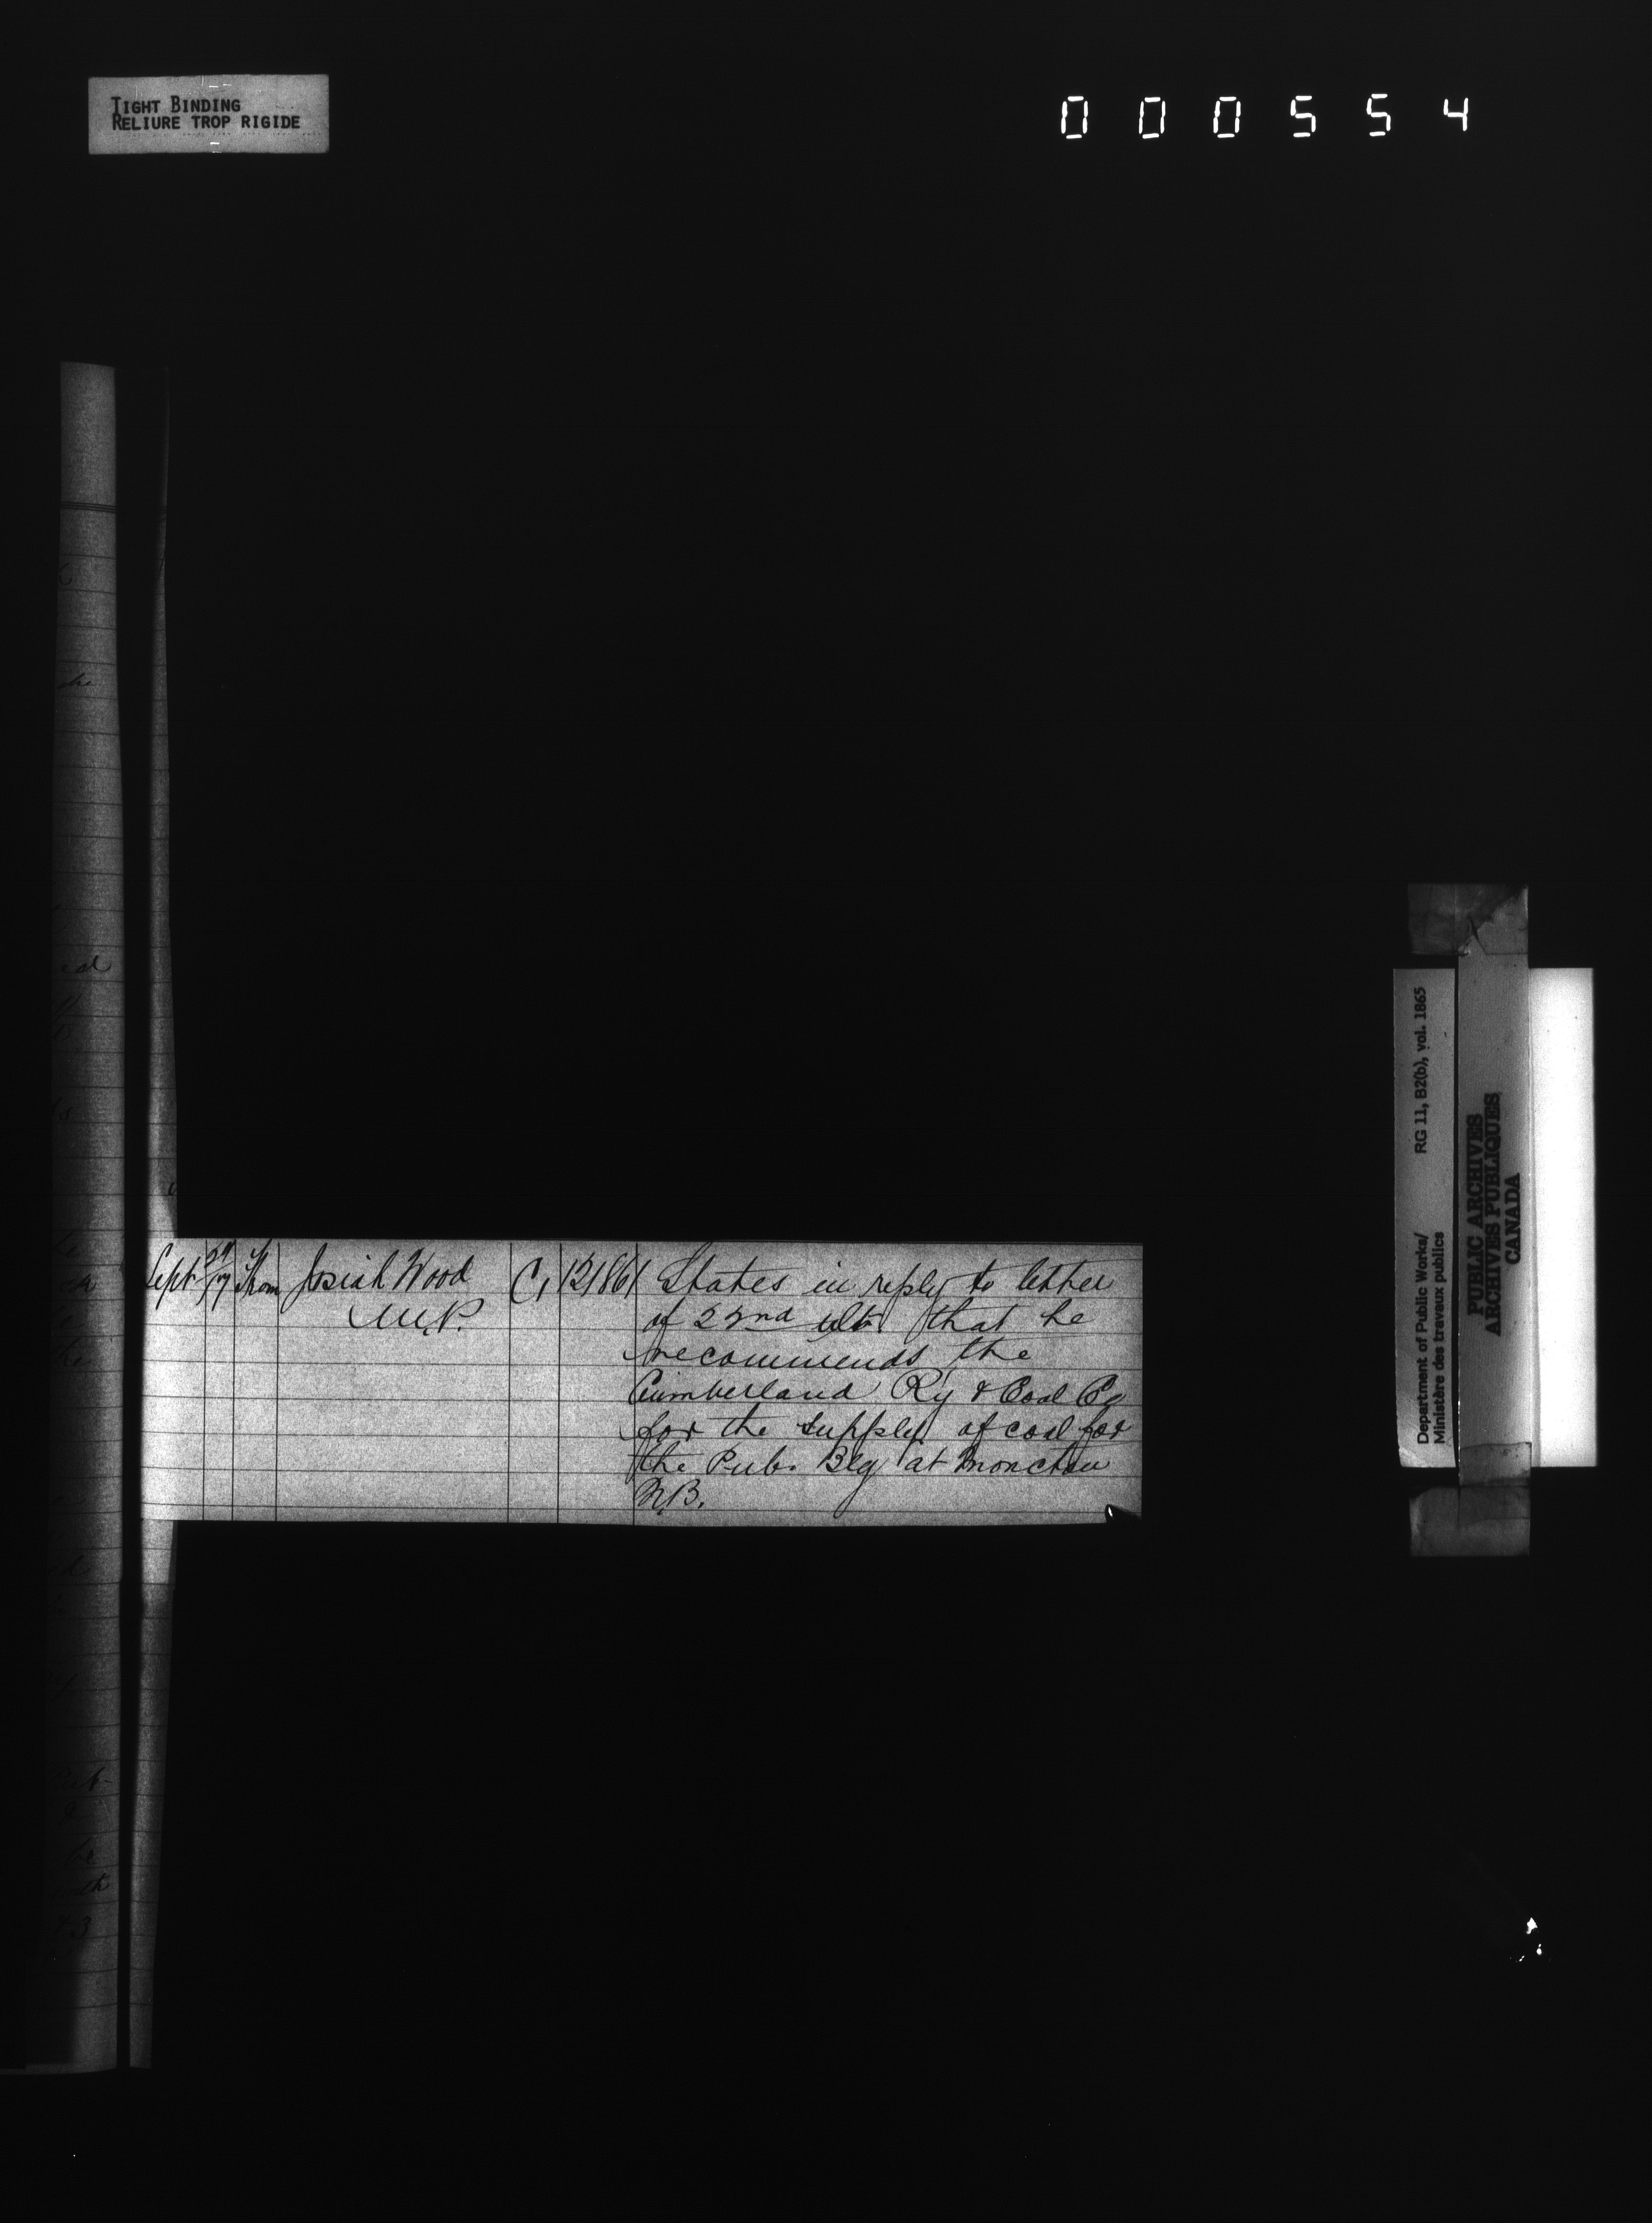 TIGHT BINDING
RELIURE TROP RIGIDE
000554
Sept 17 From Josiah Wood C, 121861 States in reply to letter
M.P. of 22nd ulto that he
recommends the
Cumberland Ry & Coal Co
for the supply of coal for
the Pub. Blg at Moncton
N.B.
Department of Public Works/ RG 11, B2(b), vol. 1865
Ministère des travaux publics
PUBLIC ARCHIVES
ARCHIVES PUBLIQUES
CANADA